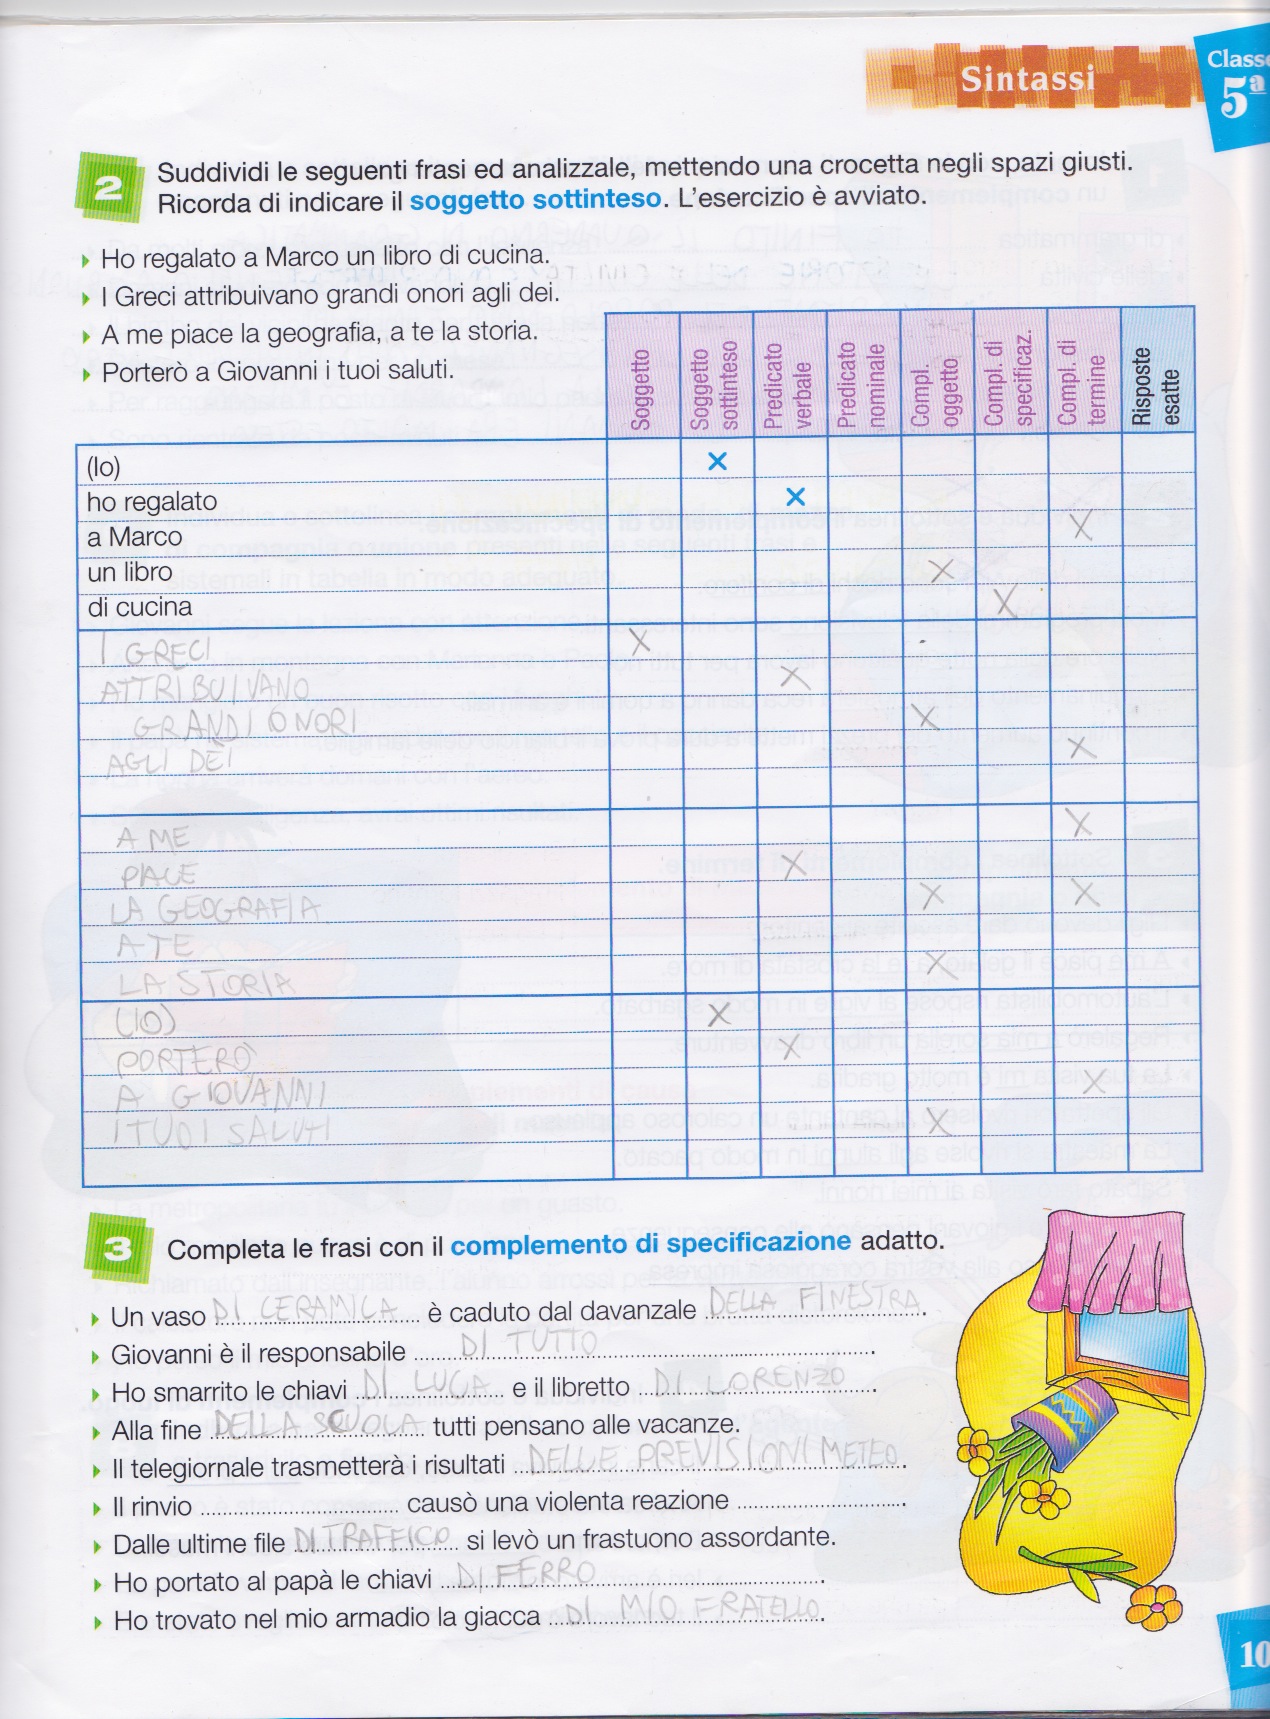 Sintassi
Classe
5ª
2
Suddividi le seguenti frasi ed analizzale, mettendo una crocetta negli spazi giusti.
Ricorda di indicare il soggetto sottinteso. L'esercizio è avviato.
Ho regalato a Marco un libro di cucina.
I Greci attribuivano grandi onori agli dei.
A me piace la geografia, a te la storia.
Porterò a Giovanni i tuoi saluti.
Soggetto
Soggetto sottinteso
Predicato verbale
Predicato nominale
Compl. oggetto
Compl. di specificaz.
Compl. di termine
Risposte esatte
(Io) ×
ho regalato ×
a Marco X
un libro X
di cucina X
I GRECI X
ATTRIBUIVANO X
GRANDI ONORI X
AGLI DEI X
A ME X
PIACE X
LA GEOGRAFIA X X
A TE
LA STORIA X
(IO) X
PORTERÒ X
A GIOVANNI X
I TUOI SALUTI X
3
Completa le frasi con il complemento di specificazione adatto.
Un vaso DI CERAMICA è caduto dal davanzale DELLA FINESTRA.
Giovanni è il responsabile DI TUTTO.
Ho smarrito le chiavi DI LUCA e il libretto DI LORENZO.
Alla fine DELLA SCUOLA tutti pensano alle vacanze.
Il telegiornale trasmetterà i risultati DELLE PREVISIONI METEO.
Il rinvio ........ causò una violenta reazione ........
Dalle ultime file DI TRAFFICO si levò un frastuono assordante.
Ho portato al papà le chiavi DI FERRO.
Ho trovato nel mio armadio la giacca DI MIO FRATELLO.
10